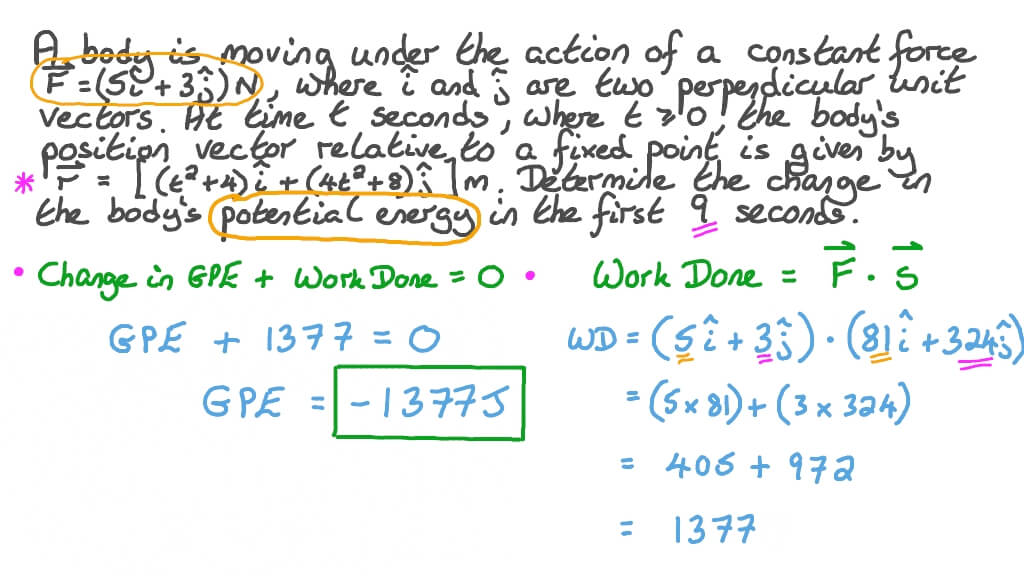 A body is moving under the action of a constant force
F⃗ = (5î + 3ĵ) N, where î and ĵ are two perpendicular unit
vectors. At time t seconds, where t ⩾ 0, the body's
position vector relative to a fixed point is given by
* r⃗ = [(t²+4)î + (4t²+8)ĵ]m. Determine the change in
the body's potential energy in the first 9 seconds.
• Change in GPE + Work Done = 0 •
GPE + 1377 = 0
GPE = -1377J
Work Done = F⃗ · s⃗
WD = (5î + 3ĵ) · (81î + 324ĵ)
= (5 x 81) + (3 x 324)
= 405 + 972
= 1377